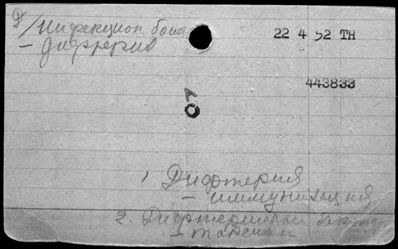 Инфекцион. бол
– Дифтерия
22 4 52 TH
443833
1. Дифтерия
– иммунизация
2. Дифтерийный
– токсины